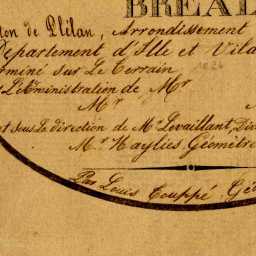 BRÉAL
ton de Plélan, Arrondissement
Département d'Ille et Vila
erminé sur Le Terrain
L'Administration de Mr
Mr
t sous La direction de Mr Levaillant, Dir
Mr Haylies Géomètre
Par Louis Gé